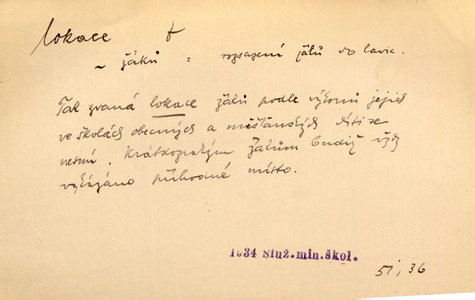 lokace f
~ žáků = rozsazení žáků do lavic.
Tak zvaná lokace žáků podle výkonů jejich
ve školách obecných a měšťanských
nesmí. Krátkozrakým žákům budiž vždy
vykázáno příhodné místo.
1934 Služ.min.škol.
51, 36